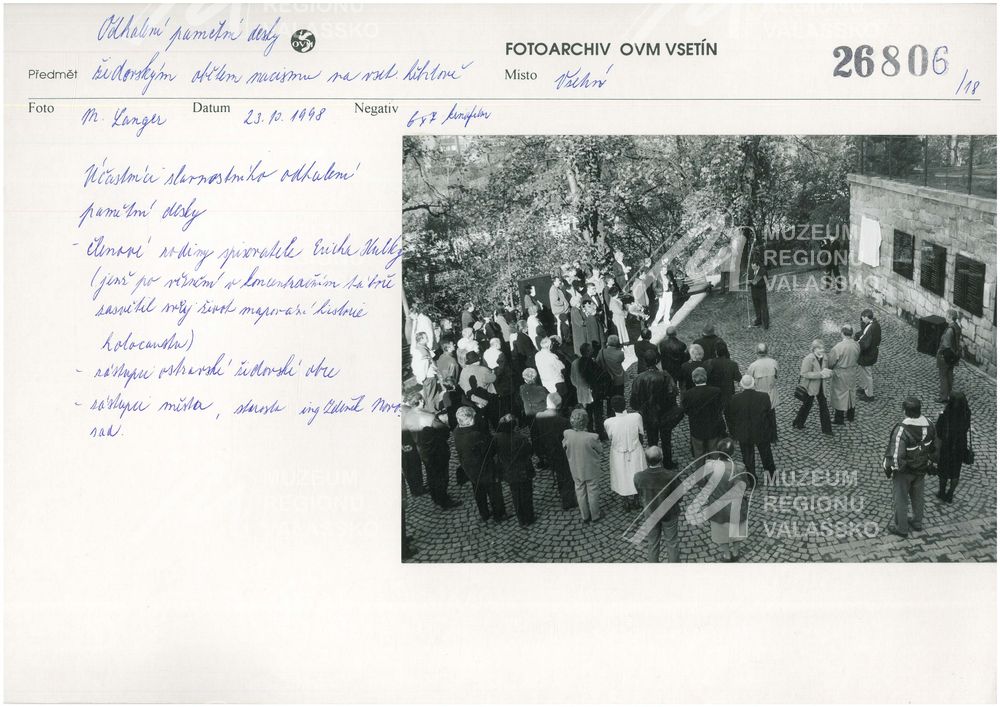 Odhalení pamětní desky
OVM
FOTOARCHIV OVM VSETÍN
26806
Předmět židovským obětem nacismu na vset. hřbitově
Místo Vsetín
/18
Foto M. Langer Datum 23.10.1998 Negativ 6x7 kinofilm
Účastníci slavnostního odhalení
pamětní desky
- členové rodiny spisovatele Ericha Kulky
(jenž po věznění v koncentračním táboře
zasvětil svůj život mapování historie
holocaustu)
- zástupci ostravské židovské obce
- zástupci města, starosta ing Zdeněk Novo
sad.
MUZEUM
REGIONU
VALAŠSKO
MUZEUM
REGIONU
VALAŠSKO
MUZEUM
REGIONU
VALAŠSKO